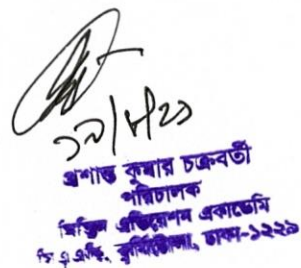 ১৯/৮/২১
প্রশান্ত কুমার চক্রবর্তী
পরিচালক
সিভিল এভিয়েশন একাডেমি
সি এ এবি, কুর্মিটোলা, ঢাকা-১২২৯